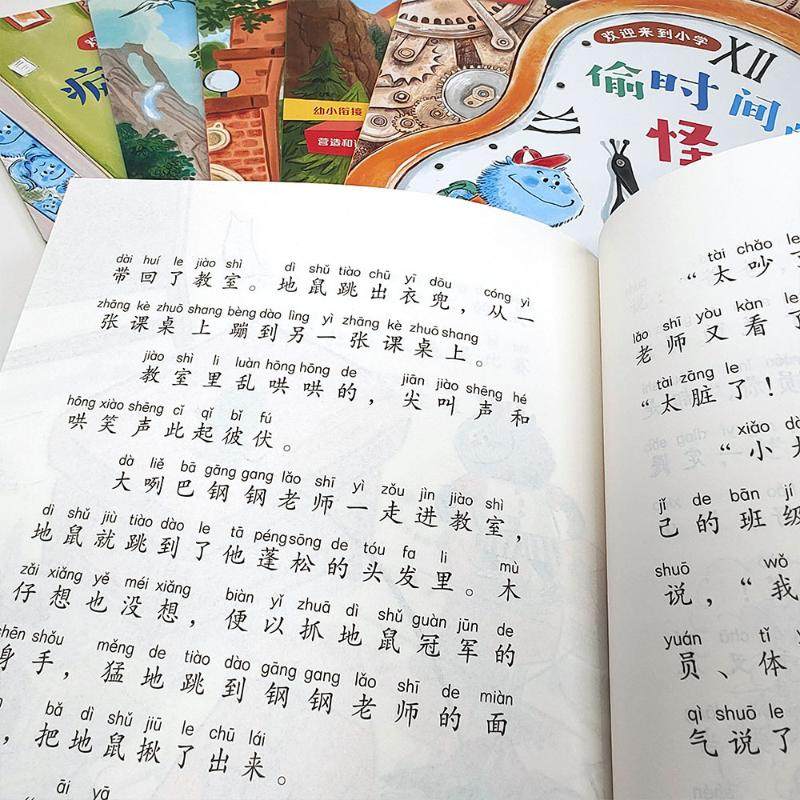 欢迎来到小学
XII
偷时间
怪
幼小衔接
dài huí le jiào shì dì shǔ tiào chū yī dōu cóng yì
带回了教室。地鼠跳出衣兜，从一
zhāng kè zhuō shang bèng dào lìng yì zhāng kè zhuō shang
张课桌上蹦到另一张课桌上。
jiào shì li luàn hōng hōng de jiān jiào shēng hé
教室里乱哄哄的，尖叫声和
hōng xiào shēng cǐ qǐ bǐ fú
哄笑声此起彼伏。
dà liě bā gāng gang lǎo shī yì zǒu jìn jiào shì
大咧巴钢钢老师一走进教室，
dì shǔ jiù tiào dào le tā péng sōng de tóu fa li mù
地鼠就跳到了他蓬松的头发里。木
zǎi xiǎng yě méi xiǎng biàn yǐ zhuā dì shǔ guàn jūn de
仔想也没想，便以抓地鼠冠军的
shēn shǒu měng de tiào dào gāng gang lǎo shī de miàn
身手，猛地跳到钢钢老师的面
bǎ dì shǔ jiū le chū lái
，把地鼠揪了出来。
āi yā
tài chǎo le
“太吵了
lǎo shī yòu kàn le
老师又看了
tài zāng le
“太脏了！
xiǎo
“小
jǐ de bān jí
己的班级
shuō wǒ
说，“我
yuán tǐ
员、体
qì shuō le
气说了